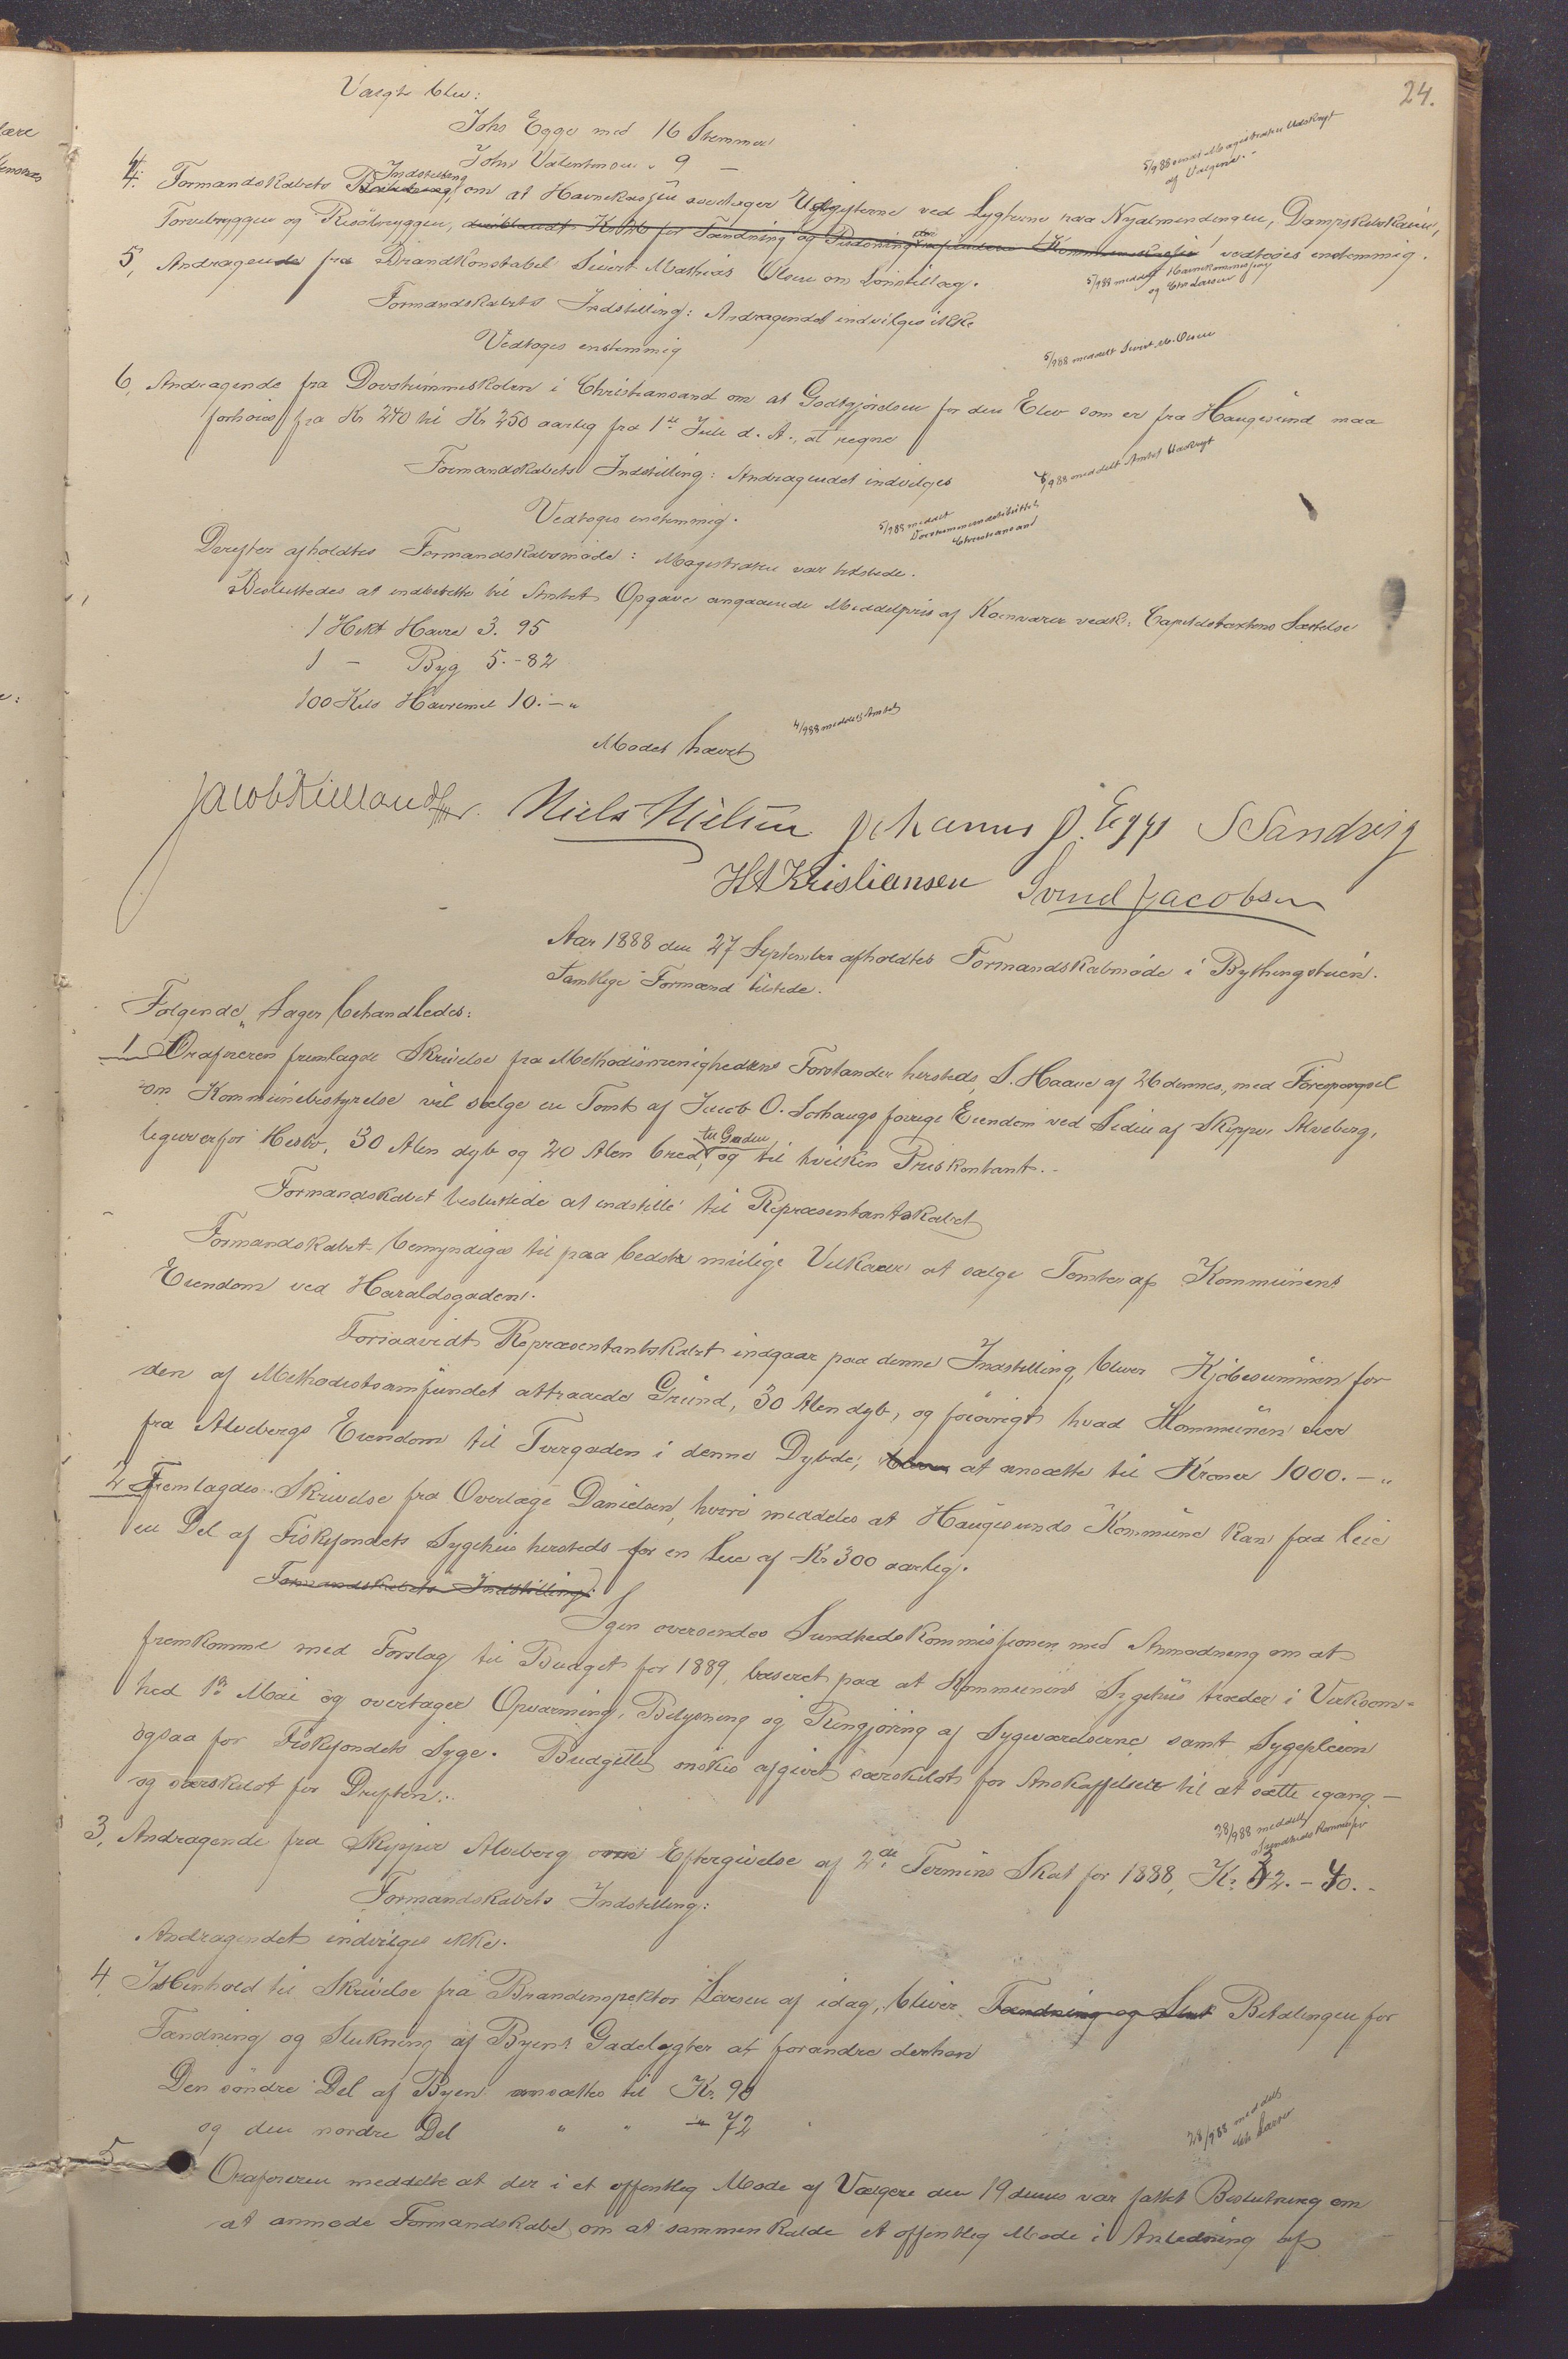 24.
Valgte blev:
Johs Egge med 16 Stemmer
John Valentinsen " 9 —
5/9 88 sendt Magistraten Udskrift
af Valgene. -
4. Formandskabets Indstilling om at Havnekassen overtager Udgifterne ved Lygterne paa Nyalmendingen, Dampskibskaien,
Torvebryggen og Risöbryggen, vedtoges enstemmig.
5/9 88 meddelt Havnekommission
og
5, Andragende fra Brandkonstabel Sivert Mathias Olsen om Lönstillæg.
Formandskabets Indstilling: Andragendet indvilges ikke
Vedtoges enstemmig
5/9 88 meddelt Sivert M. Olsen
6, Andragende fra Dovstummeskolen i Christiansand om at Godtgjörelsen for den Elev som er fra Haugesund maa
forhöies fra Kr 240 til Kr 250 aarlig fra 1ste Juli d. A., at regne
Formandskabets Indstilling: Andragendet indvilges
5/9 88 meddelt Amtet Udskrift
Vedtoges enstemmig.
5/9 88 meddelt
Dovstummeinstituttet,
Christiansand
Derefter afholdtes Formandskabsmöde: Magistraten var tilstede.
Besluttedes at indberette til Amtet Opgave angaaende Middelpris af Kornvarer vedk. Capitelstaxtens Sættelse
1 Hekt Havre 3. 95
1 — Byg 5.-82
100 Kilo Havremel 10.— "
4/9 88 meddelt Amtet
Mödet hævet
Jacob Kielland Niels Nielsen Johannes J. Egge S Sandvig
H A Kristiansen Svend Jacobsen
Aar 1888 den 27 September afholdtes Formandskabmöde i Bythingstuen.
Samtlige Formænd tilstede.
Folgende Sager behandledes:
1 Ordföreren fremlagde Skrivelse fra Methodistmenighedens Forstander hersteds S. Haave af 26 dennes, med Forespørgsel
om Kommunebestyrelse vil sælge en Tomt af Jacob O. Sorhaugs forrige Eiendom ved Siden af Skipper Alveberg,
ligeoverfor Hesbø, 30 Alen dyb og 20 Alen bred til Gaden, og til hvilken Pris kontant. -
Formandskabet besluttede at indstille til Repræsentantskabet
Formandskabet bemyndiges til paa bedste mulige Vilkaar at sælge Tomter af Kommunens
Eiendom ved Haraldsgaden.
Forsaavidt Repræsentantskabet indgaar paa denne Indstilling, bliver Kjöbesummen for
den af Methodistsamfundet attraaede Grund, 30 Alen dyb, og forövrigt hvad Kommunen eier
fra Alvebergs Eiendom til Tvergaden i denne Dybde, at ansætte til Kroner 1000. — "
2 Fremlagdes Skrivelse fra Overlæge Danielsen, hvori meddeles at Haugesunds Kommune kan faa leie
en Del af Fiskefondets Sygehus hersteds for en Leie af Kr 300 aarlig.
Formandskabets Indstilling:
Sgen oversendes Sundhedskommissionen med Anmodning om at
fremkomme med Forslag til Budget for 1889, baseret paa at Kommunens Sygehus træder i Virksom-
hed 1ste Mai og overtager Opvarming, Belysning og Rengjöring af Sygeværelserne samt Sygepleien
ogsaa for Fiskefondets Syge. Budgettet önskes afgivet særskildt for Anskaffelser til at sætte igang —
og særskildt for Driften.
28/9 88 meddelt
Sundhedskommission
3, Andragende fra Skipper Alveberg om Eftergivelse af 2den Termins Skat for 1888, Kr. 32. — 40. -
Formandskabets Indstilling:
Andragendet indvilges ikke.
4, I Henhold til Skrivelse fra Brandinspektor Larsen af idag, bliver Tændning og Sluk Betalingen for
Tændning og Slukning af Byens Gadelygter at forandre derhen
Den söndre Del af Byen ansættes til Kr. 90
og den nordre Del " " " 72
28/9 88 meddelt
Larsen
5 Ordföreren meddelte at der i et offentlig Möde af Vælgere den 19 dennes var fattet Beslutning om
at anmode Formandskabet om at sammenkalde et offentlig Möde i Anledning af